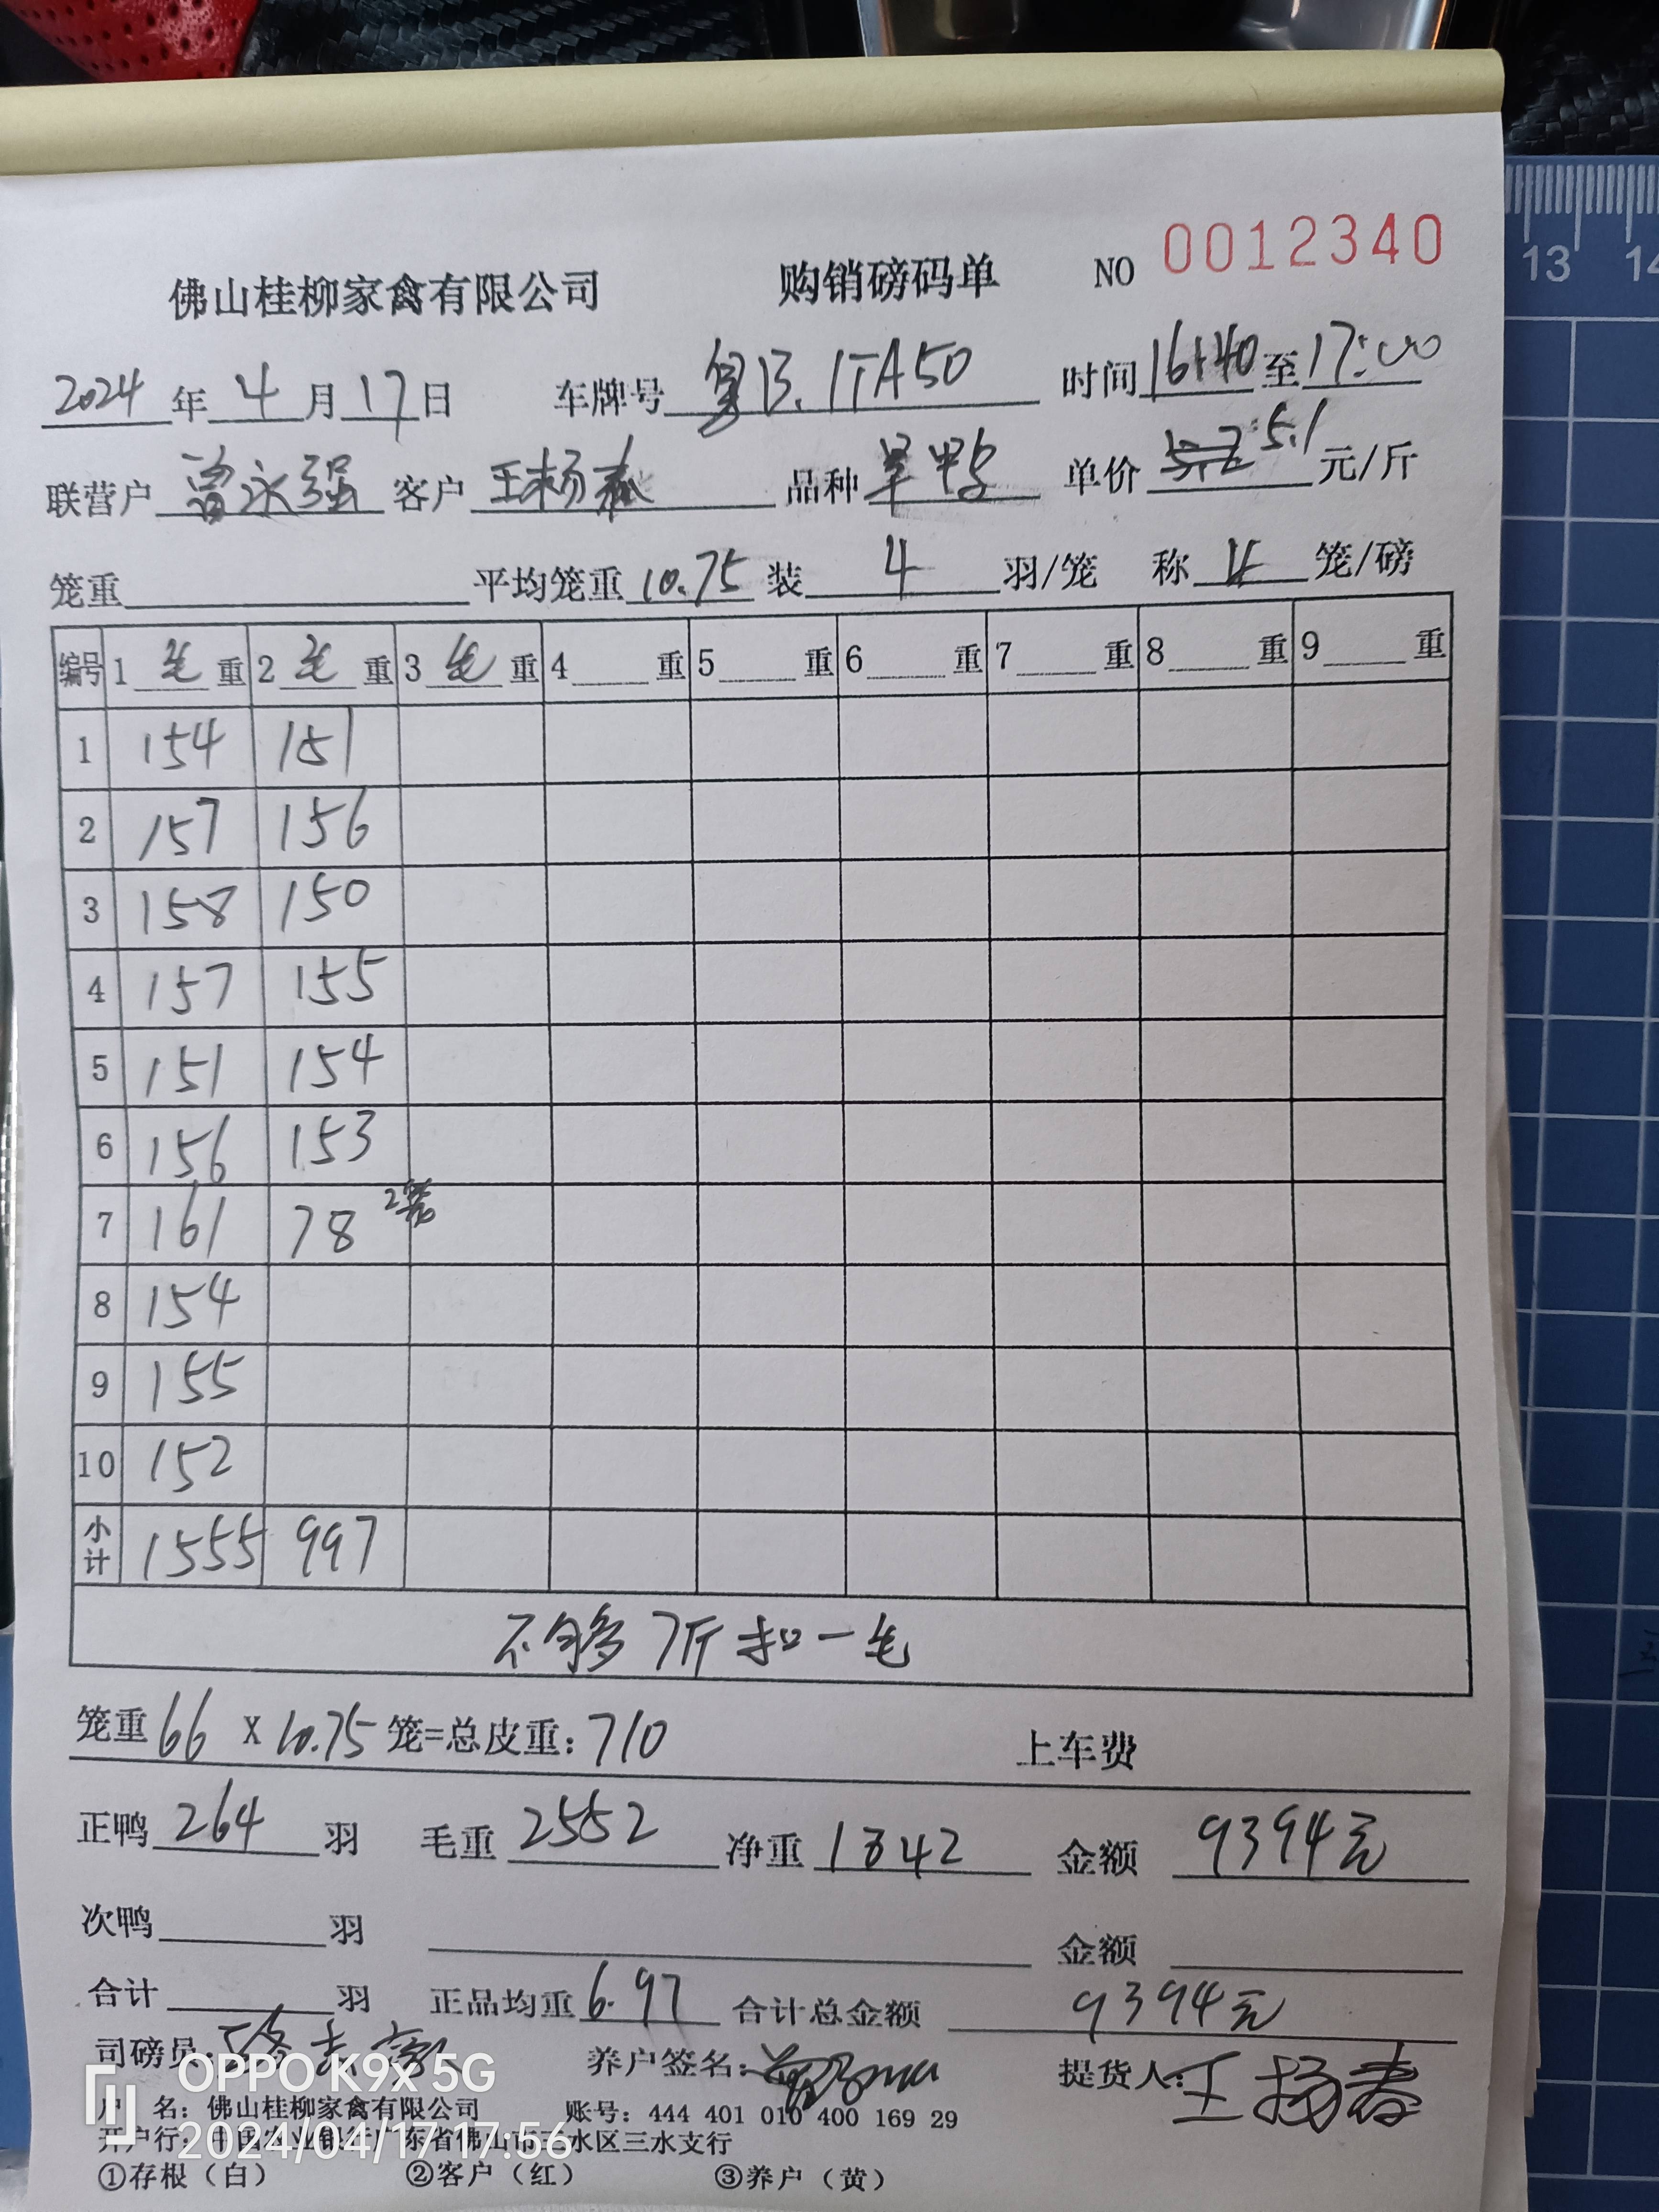 佛山桂柳家禽有限公司 购销磅码单 NO 0012340
2024年4月17日 车牌号 粤B.1TA50 时间16:40至17:00
联营户 曾永强 客户 王杨春 品种 旱鸭 单价 5.1元/斤
笼重 平均笼重10.75 装 4 羽/笼 称 4 笼/磅
编号 1 毛 重 2 毛 重 3 毛 重 4 重 5 重 6 重 7 重 8 重 9 重
1 154 151
2 157 156
3 158 150
4 157 155
5 151 154
6 156 153
7 161 78 2笼
8 154
9 155
10 152
小计 1555 997
不够7斤扣一毛
笼重66 X 10.75 笼=总皮重:710 上车费
正鸭 264 羽 毛重 2552 净重 1842 金额 9394元
次鸭 羽 金额
合计 羽 正品均重 6.97 合计总金额 9394元
司磅员: 养户签名: 提货人:王扬春
户 名: 佛山桂柳家禽有限公司 账号: 444 401 010 400 169 29
开户行: 中国农业银行广东省佛山市三水区三水支行
①存根(白) ②客户(红) ③养户(黄)
OPPO K9x 5G
2024/04/17 17:56
13 14